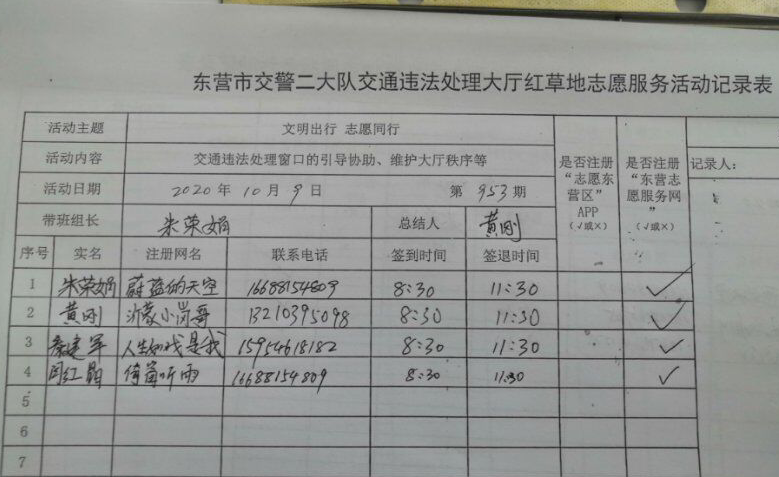 东营市交警二大队交通违法处理大厅红草地志愿服务活动记录表
活动主题 文明出行 志愿同行
活动内容 交通违法处理窗口的引导协助、维护大厅秩序等
活动日期 2020年10月9日 第953期
带班组长 朱荣娟 总结人 黄刚
是否注册“志愿东营区”APP(√或×)
是否注册“东营志愿服务网”(√或×)
记录人:
序号 实名 注册网名 联系电话 签到时间 签退时间
1 朱荣娟 蔚蓝的天空 16688154809 8:30 11:30 ✓
2 黄刚 沂蒙小岗哥 13210395098 8:30 11:30 ✓
3 秦建军 人生如戏是我 15954618182 8:30 11:30 ✓
4 闫红晶 倚窗听雨 16688154809 8:30 11:30 ✓
5
6
7